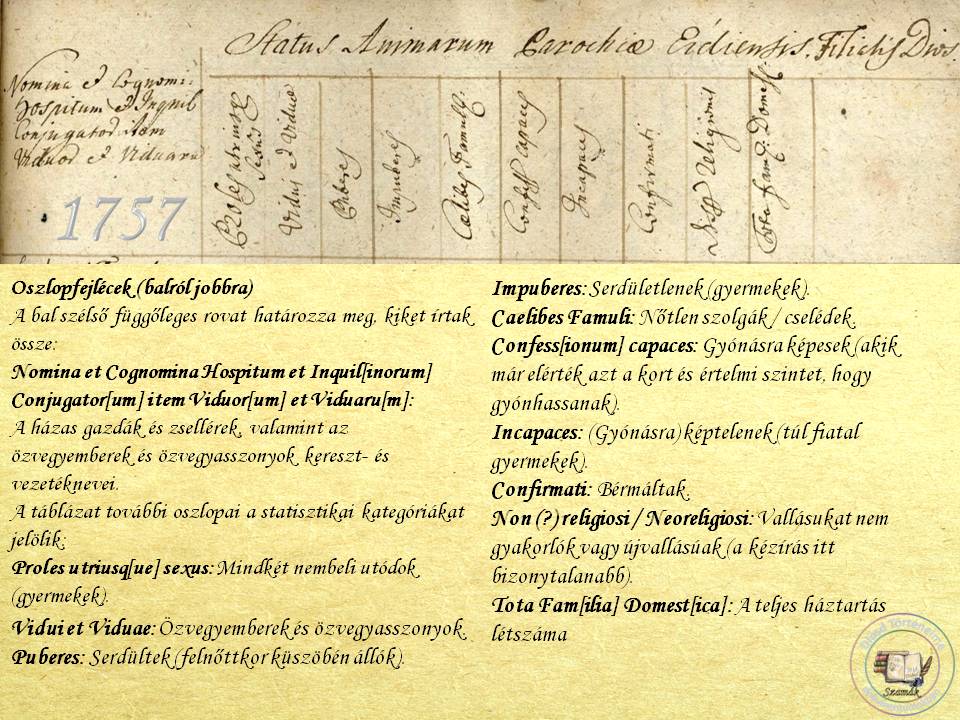 Status Animarum Parochiæ Érdiensis. Filialis Dios.
Nomina et Cognomi:
Hospitum et Inquil
Conjugator item
Viduor et Viduaru
Proles utriusq
Sexus
Vidui et Viduæ
Puberes
Impuberes
Cælibes Famuli
Confess capaces
Incapaces
Confirmati
Religionis
Tota Fam. Domest.
1757
Oszlopfejlécek (balról jobbra)
A bal szélső függőleges rovat határozza meg, kiket írtak
össze:
Nomina et Cognomina Hospitum et Inquil[inorum]
Conjugator[um] item Viduor[um] et Viduaru[m]:
A házas gazdák és zsellérek, valamint az
özvegyemberek és özvegyasszonyok kereszt- és
vezetéknevei.
A táblázat további oszlopai a statisztikai kategóriákat
jelölik:
Proles utriusq[ue] sexus: Mindkét nembeli utódok
(gyermekek).
Vidui et Viduae: Özvegyemberek és özvegyasszonyok.
Puberes: Serdültek (felnőttkor küszöbén állók).
Impuberes: Serdületlenek (gyermekek).
Caelibes Famuli: Nőtlen szolgák / cselédek.
Confess[ionum] capaces: Gyónásra képesek (akik
már elérték azt a kort és értelmi szintet, hogy
gyónhassanak).
Incapaces: (Gyónásra) képtelenek (túl fiatal
gyermekek).
Confirmati: Bérmáltak.
Non (?) religiosi / Neoreligiosi: Vallásukat nem
gyakorlók vagy újvallásúak (a kézírás itt
bizonytalanabb).
Tota Fam[ilia] Domest[ica]: A teljes háztartás
létszáma
Számák